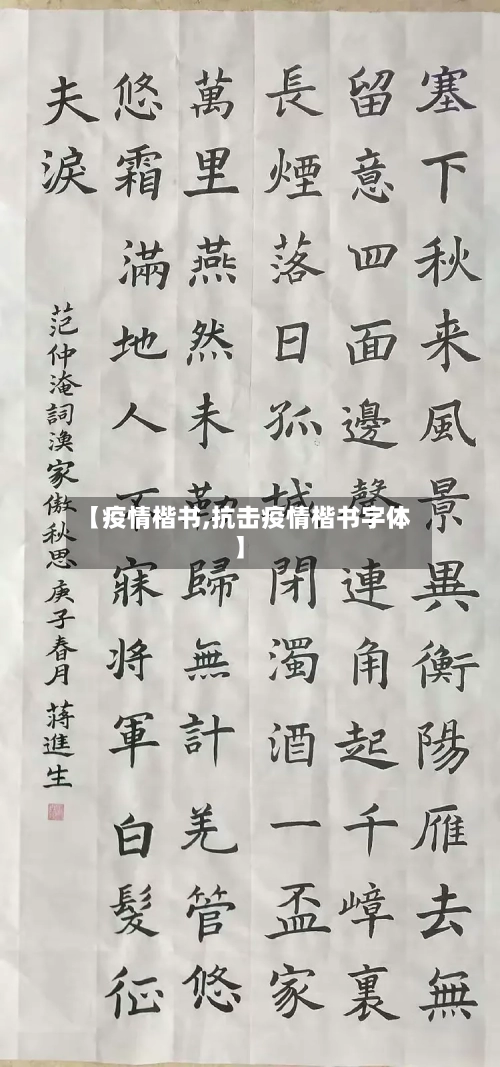 塞下秋来風景異衡陽雁去無
留意四面邊聲連角起千嶂裏
長煙落日孤城閉濁酒一盃家
萬里燕然未勒歸無計羌管悠
悠霜滿地人不寐将軍白髮征
夫淚
范仲淹詞漁家傲秋思庚子春月蔣進生
【疫情楷书,抗击疫情楷书字体
】